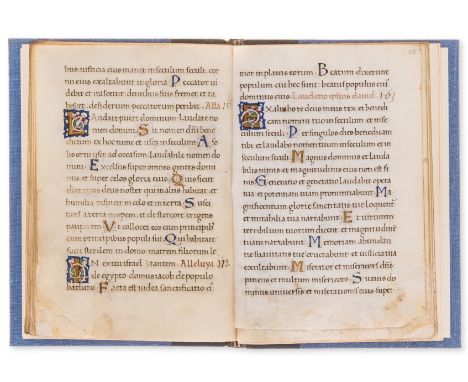 bus iusticia eius manet in seculum seculi: cor
nu eius exaltabitur in gloria. Peccator ui
debit et irascetur dentibus suis fremet et ta
bescet: desiderium peccatorum peribit. Alla
Laudate pueri dominum: laudate no
men domini. Sit nomen domini bene
dictum: ex hoc nunc et usque in seculum. A so
lis ortu usque ad occasum: laudabile nomen do
mini. Excelsus super omnes gentes domi
nus: et super celos gloria eius. Quis
sicut dominus deus noster qui in altis habitat: et
humilia respicit in celo et in terra. Susci
tans a terra inopem: et de stercore erigens
pauperem. Vt collocet eos cum principibus:
cum principibus populi sui. Qui habitare
facit sterilem in domo: matrem filiorum le
IN exitu israel Alleluya.
de egypto: domus iacob de populo
barbaro. Facta est iudea sanctificatio eius
Beatum dixerunt
populum cui hec sunt: beatus populus cuius
dominus eius. Laudatio ipsius dauid.
Exaltabo te deus meus rex: et benedi
cam nomini tuo in seculum et in
seculum seculi. Per singulos dies benedicam
tibi: et laudabo nomen tuum in seculum et in
seculum seculi. Magnus dominus et lauda
bilis nimis: et magnitudinis eius non est fi
nis. Generatio et generatio laudabit opera
tua: et potentiam tuam pronuntiabunt. Ma
gnificentiam glorie sanctitatis tue loquentur:
et mirabilia tua narrabunt. Et uirtutem
terribilium tuorum dicent: et magnitudinem
tuam narrabunt. Memoriam abundan
tie suauitatis tue eructabunt: et iusticia tua
exaltabunt. Miserator et misericors dominus:
patiens et multum misericors. Suauis do
minus uniuersis: et miserationes eius super